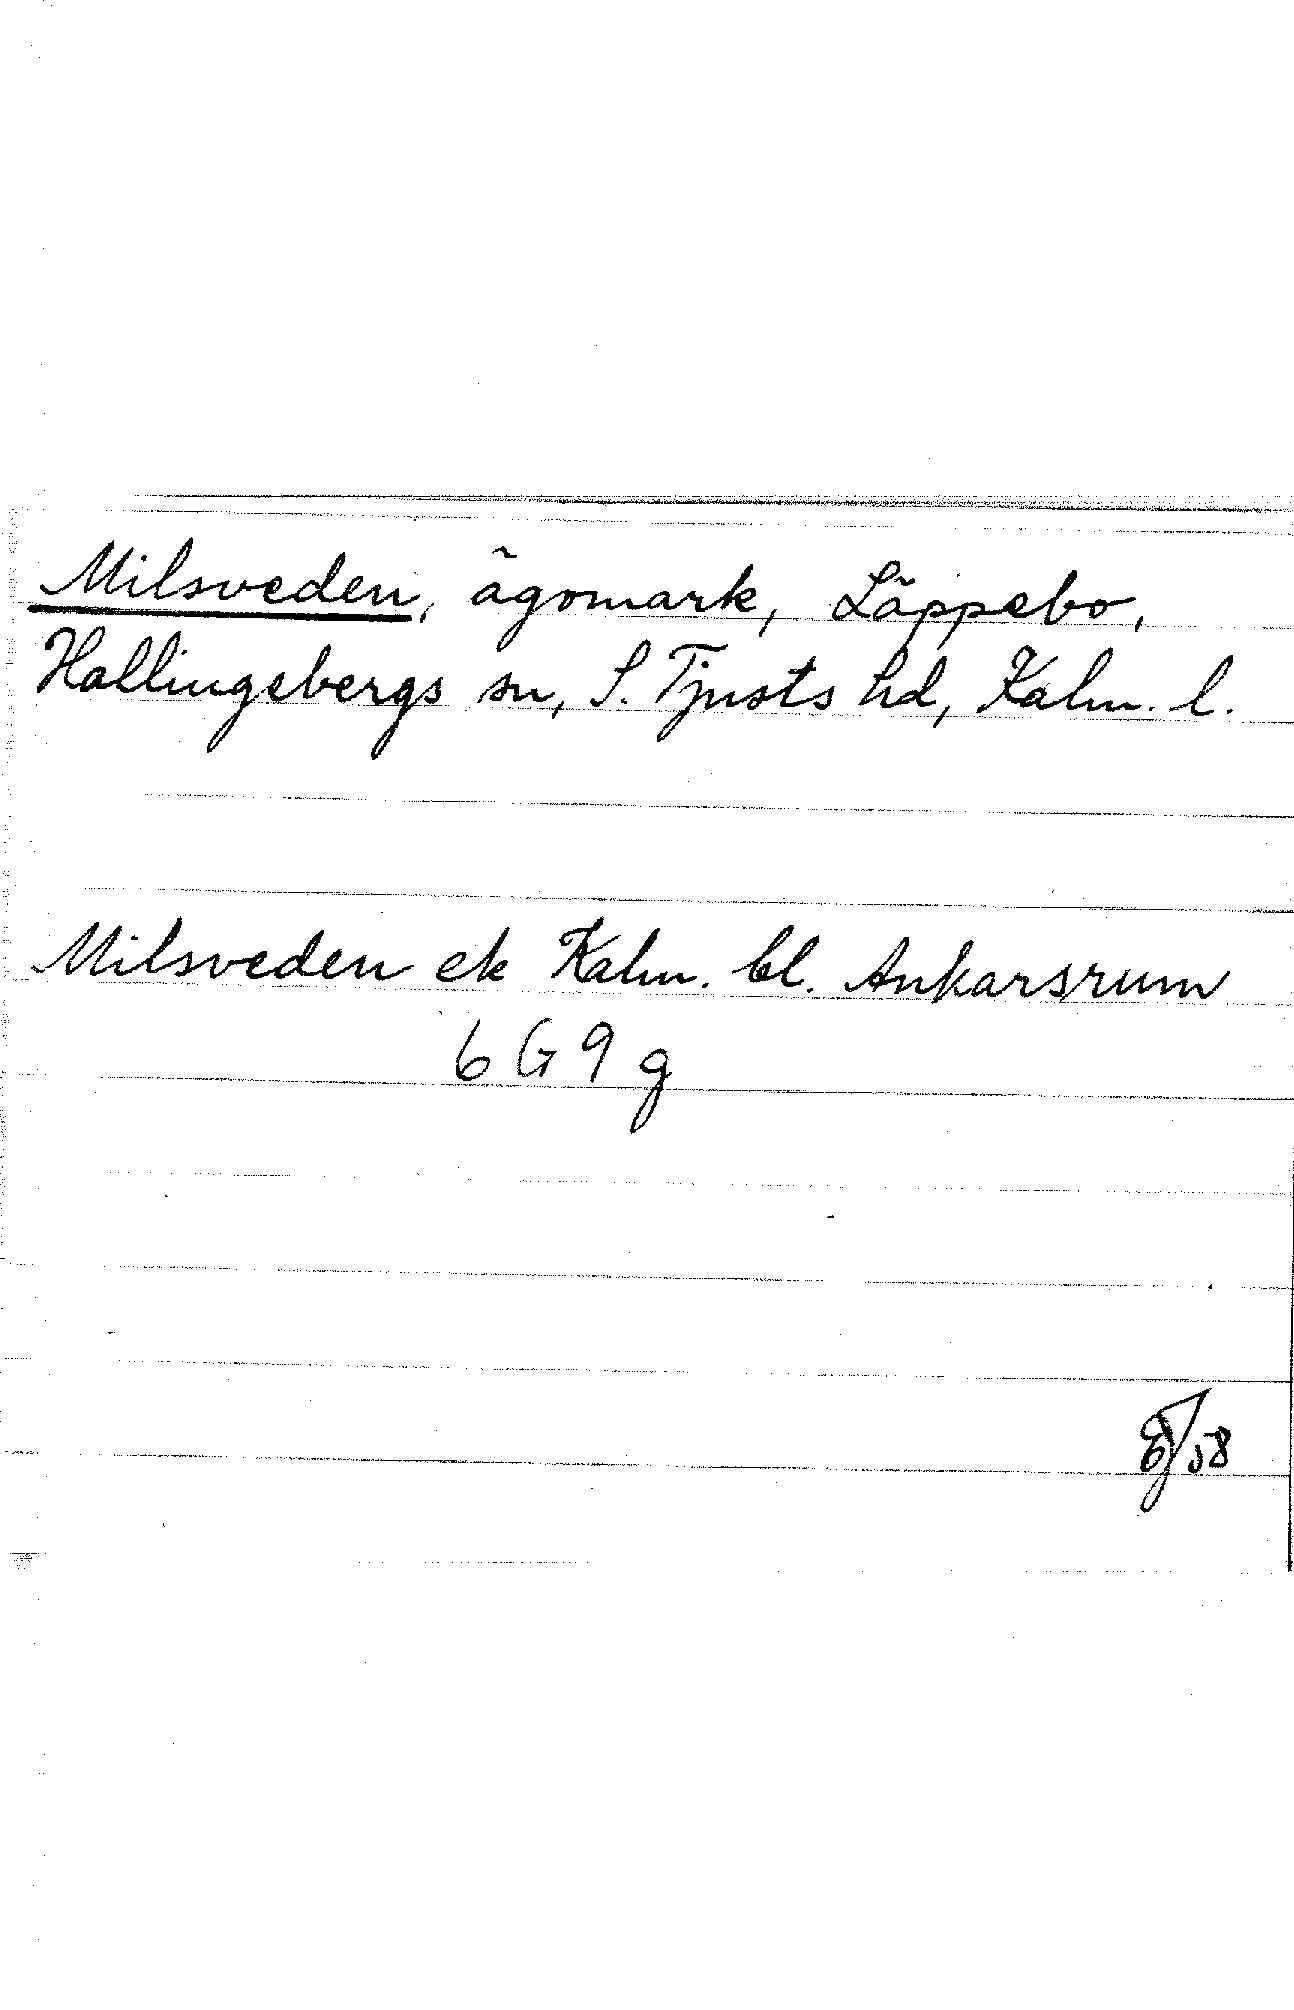 Milsveden, ägomark, Läppebo,
Hallingebergs sn, S. Tjusts hd, Kalm. l.
Milsveden ek Kalm. bl. Ankarsrum
6 G 9 g
/58